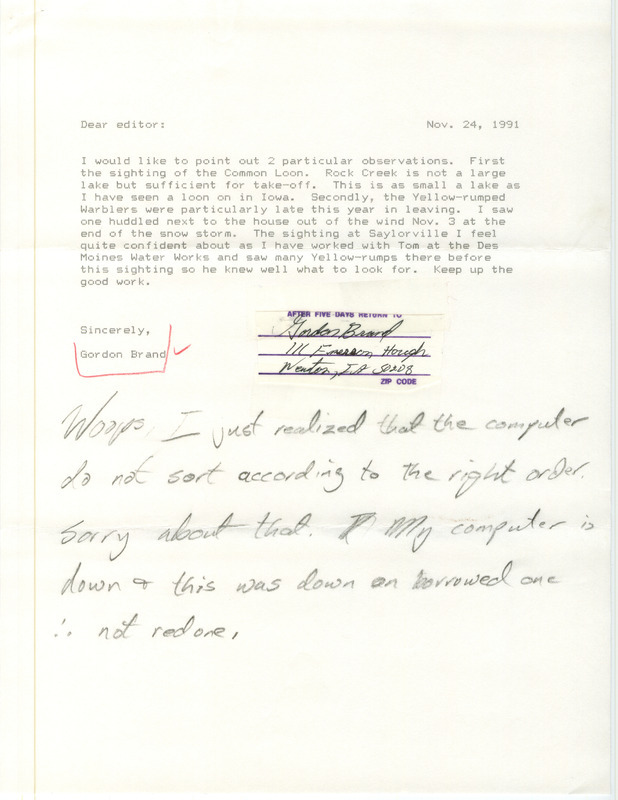 Dear editor: Nov. 24, 1991
I would like to point out 2 particular observations. First
the sighting of the Common Loon. Rock Creek is not a large
lake but sufficient for take-off. This is as small a lake as
I have seen a loon on in Iowa. Secondly, the Yellow-rumped
Warblers were particularly late this year in leaving. I saw
one huddled next to the house out of the wind Nov. 3 at the
end of the snow storm. The sighting at Saylorville I feel
quite confident about as I have worked with Tom at the Des
Moines Water Works and saw many Yellow-rumps there before
this sighting so he knew well what to look for. Keep up the
good work.
Sincerely,
Gordon Brand
AFTER FIVE DAYS RETURN TO
Gordon Brand
111 Emerson Hough
Newton, IA 50208
ZIP CODE
Woops, I just realized that the computer
do not sort according to the right order.
Sorry about that. My computer is
down & this was down on borrowed one
∴ not redone.